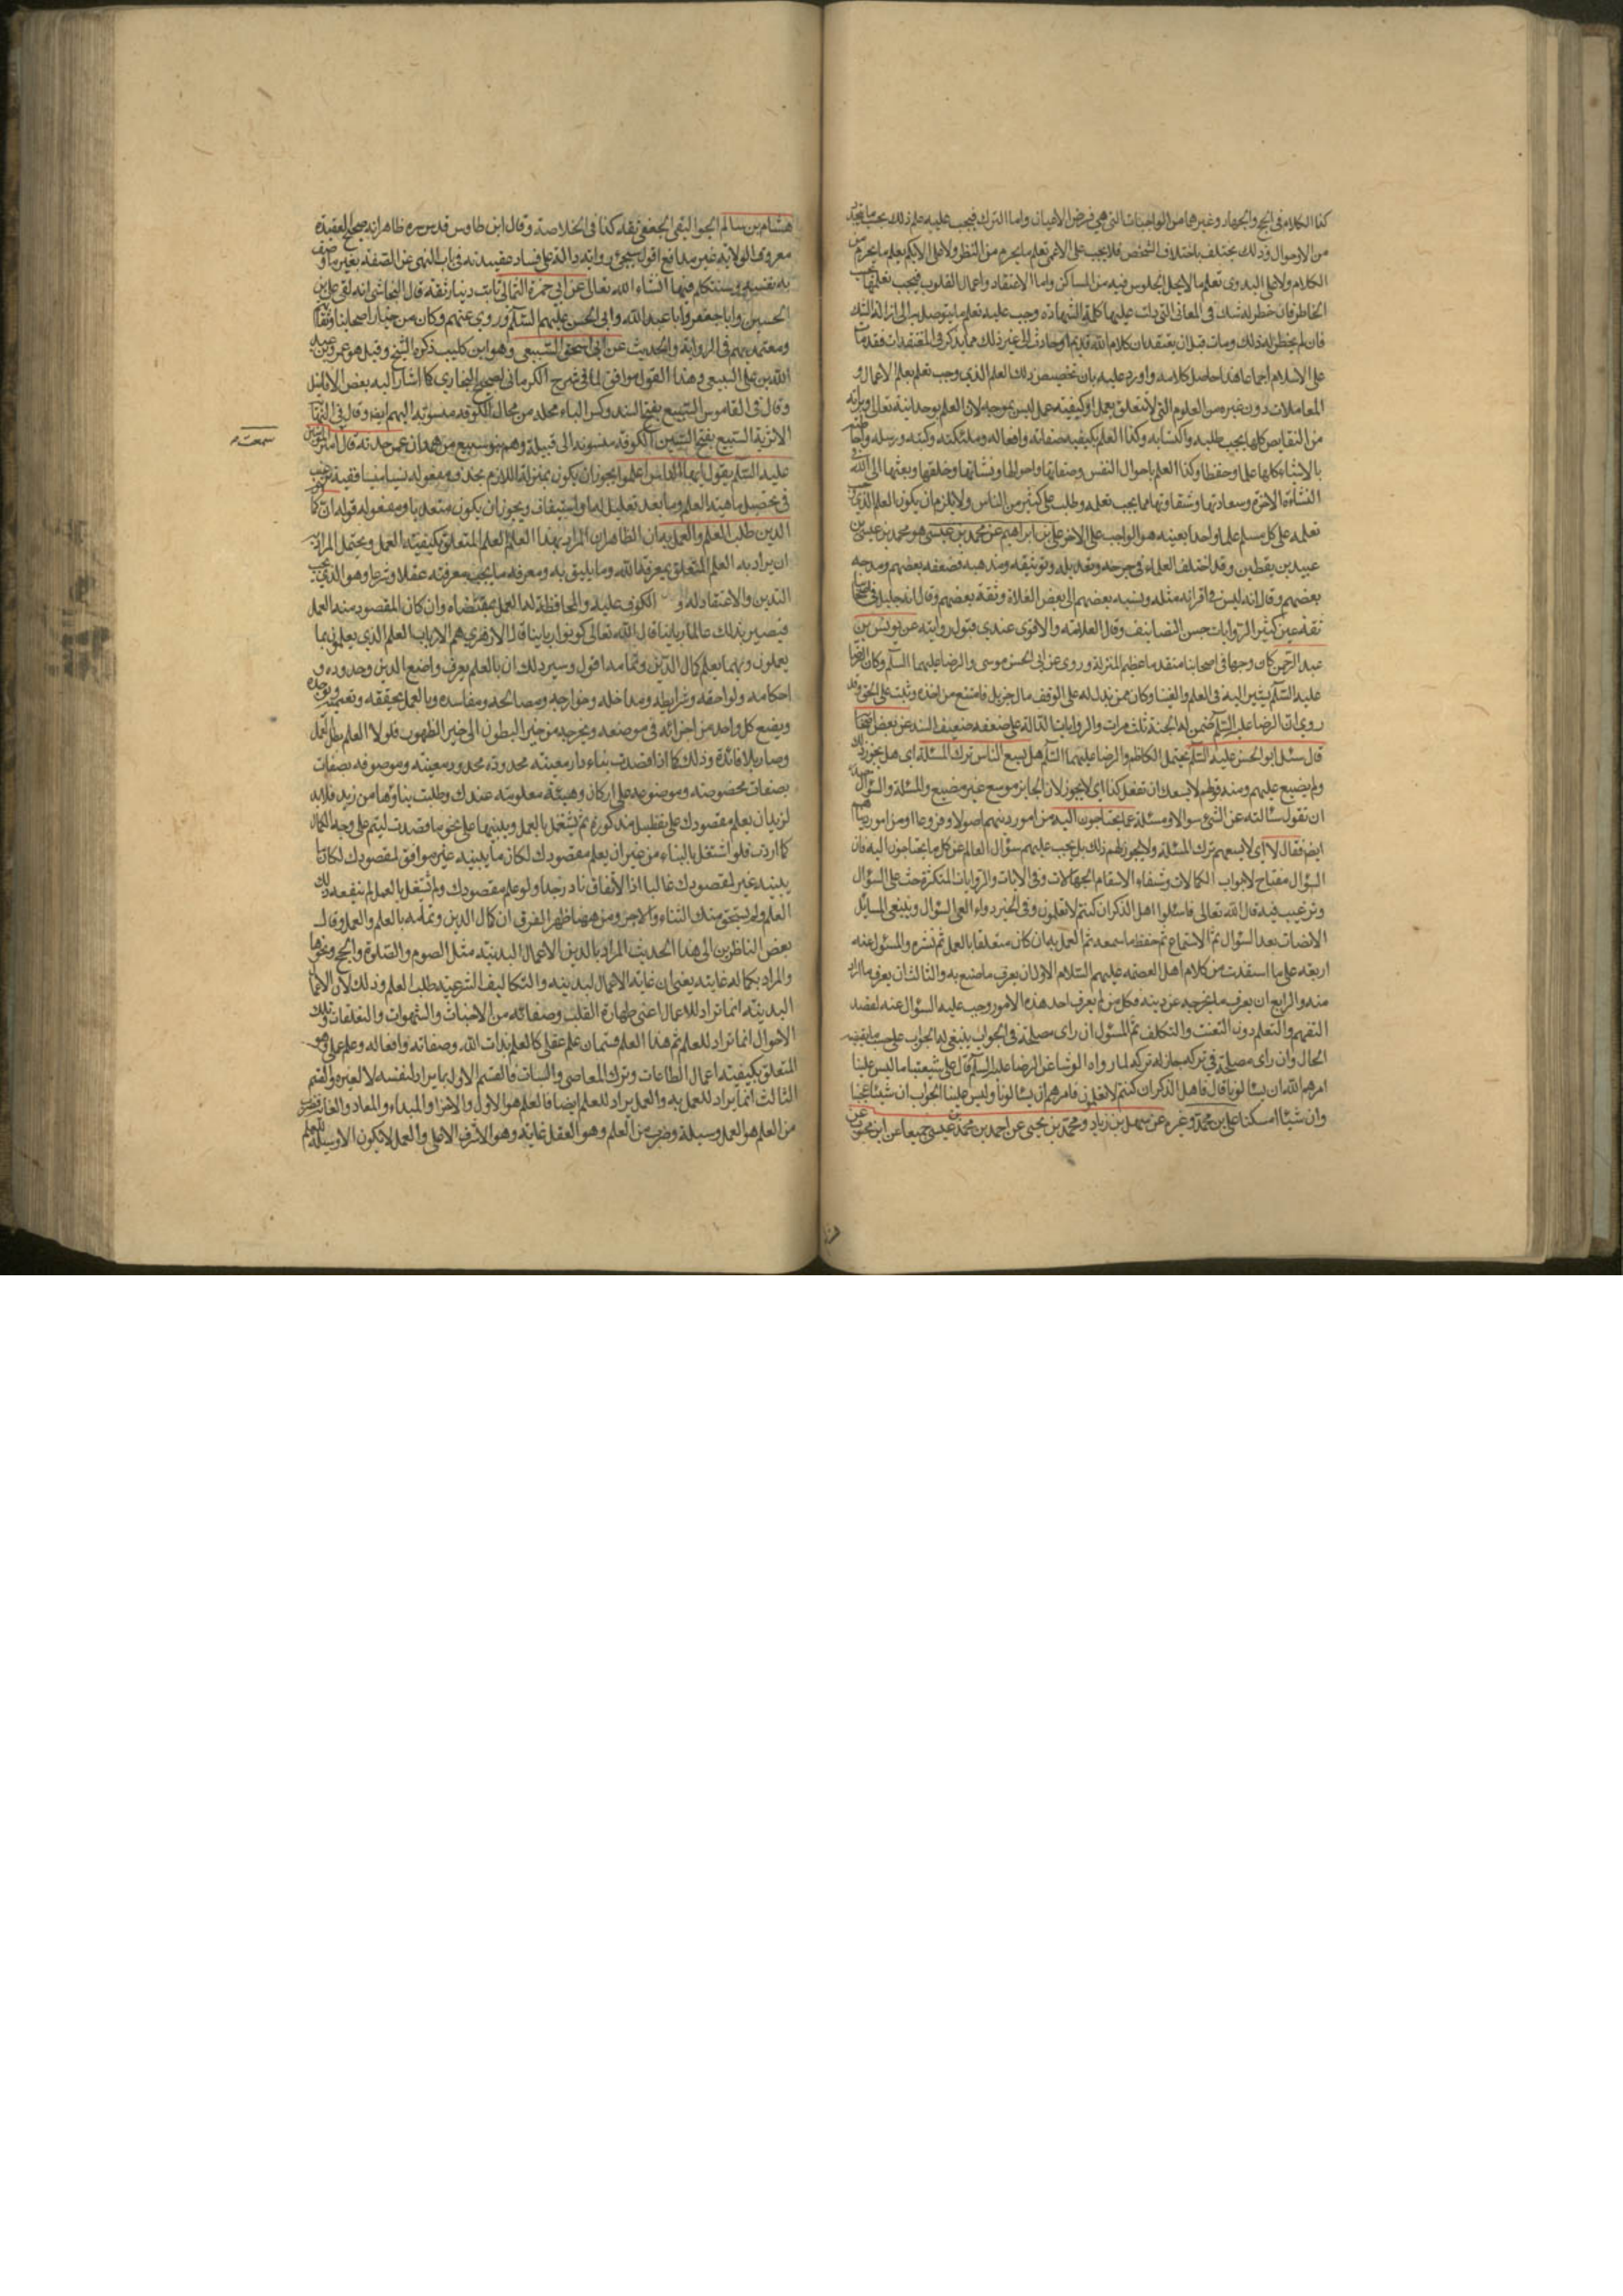 كذا الكلام في الحج والجهاد وغيرهما من الواجبات التي هي فرض الاعيان واما الترك فيجب عليه علم ذلك بحسب ما يتجدد
من الاحوال وذلك يختلف باختلاف الشخص فلا يجب على الاعمى تعلم ما يحرم من النظر ولا على الابكم تعلم ما يحرم من
الكلام ولا على البدوي تعلم ما لا يحل الجلوس فيه من المساكن واما الاعتقاد واعمال القلوب فيجب تعلمها بحسب
الخاطر فان خطر له شك في المعاني التي دلت عليها كلمة الشهادة وجب عليه تعلم ما يتوصل به الى ازالة الشك
فان لم يخطر له ذلك ومات قبل ان يعتقد ان كلام الله قديم او حادث الى غير ذلك مما يذكر في المعتقدات فقد مات
على الاسلام اجماعا هذا حاصل كلامه واورد عليه بان تخصيص ذلك العلم الذي وجب تعلم بعلم الاعمال و
المعاملات دون غيره من العلوم التي لا تتعلق بعمل او كيفية عمل ليس بموجه لان العلم بوحدانيته تعالى وبرائته
من النقايص كلها يجب طلبه واكتسابه وكذا العلم بكيفية صفاته وافعاله وملئكته وكتبه ورسله
بالاشياء كلها علما وحفظا وكذا العلم باحوال النفس وصفاتها واحوالها ونشأتها وخلقها وبعثها الى الله
النشأة الاخرة وسعادتها وشقاوتها مما يجب تعلمه وطلبه على كثير من الناس ولا يلزم ان يكون العلم الذي يجب
تعلمه على كل مسلم علما واحدا بعينه هو الواجب على الاخر علي بن ابراهيم عن محمد بن عيسى هو محمد بن عيسى بن
عبيد بن يقطين وقد اختلف العلماء في جرحه وتعديله وتوثيقه ومذهبه فضعفه بعضهم ومدحه
بعضهم وقال انه ليس في اقرانه مثله ونسبه بعضهم الى بعض الغلاة وثقة بعضهم وقال انه جليل في اصحابنا
ثقة عين كثير الروايات حسن التصانيف وقال العلامة والاقوى عندي قبول روايته عن يونس بن
عبد الرحمن كان وجها في اصحابنا متقدما عظيم المنزلة وروى عن ابي الحسن موسى والرضا عليهما السلم وكان الرضا
عليه السلم يشير اليه في العلم والفتيا وكان ممن بذل له على الوقف مال جزيل فامتنع من اخذه وثبت على الحق وقد
روي ان الرضا عليه السلم ضمن له الجنة ثلث مرات والروايات الدالة على ضعفه ضعيف السند عن بعض اصحابنا
قال سئل ابو الحسن عليه السلم يحتمل الكاظم والرضا عليهما السلم هل يسع الناس ترك المسئلة اي هل يجوز ذلك
ولم يضيع عليهم ومنه قولهم لا يسعك ان تفعل كذا اي لا يجوز لان الجايز موسع غير مضيع والمسئلة والسؤال
ان تقول سألته عن الشئ سوالا ومسئلة عما يحتاجون اليه من امور دينهم اصولا وفروعا او من امور دنياهم
ايضر فقال لا اي لا يسعهم ترك المسئلة ولا يجوز لهم ذلك بل يجب عليهم سؤال العالم عن كل ما يحتاجون اليه فان
السؤال مفتاح لابواب الكمالات وشفاء الاسقام الجهالات وفي الايات والروايات المتكثرة حث على السؤال
وترغيب فيه قال الله تعالى فاسئلوا اهل الذكر ان كنتم لا تعلمون وفي الخبر دواء العي السؤال وينبغي للسائل
الانصات بعد السؤال ثم الاستماع ثم حفظ ما سمعه ثم العمل به ان كان متعلقا بالعمل ثم نشره والمسئول عنه
اربعة على ما استفدت من كلام اهل العصمة عليهم السلام الاول ان يعرف ما صنع به والثالث ان يعرف ما اراد
منه والرابع ان يعرف ما يخرجه عن دينه فكل من لم يعرف احد هذه الامور وجب عليه السؤال عنه لقصد
التفهم والتعلم دون التعنت والتكلف ثم المسئول ان راى مصلحة في الجواب ينبغي له الجواب على حسب ما يقتضيه
الحال وان راى مصلحة في تركه جاز له تركه لما رواه الوشا عن الرضا عليه السلم قال على شيعتنا ما ليس علينا
امرهم الله ان يسئالونا قال فاسئلوا اهل الذكر ان كنتم لا تعلمون فامرهم ان يسئالونا وليس علينا الجواب ان شيئنا اجبنا
وان شيئنا امسكنا علي بن محمد وغيره عن سهل بن زياد ومحمد بن يحيى عن احمد بن محمد بن عيسى جميعا عن ابن محبوب عن
هشام بن سالم الجواليقي الجعفي ثقة كذا في الخلاصة وقال ابن طاوس قدس سره ظاهر انه صحيح العقيدة
معروف الولاية غير مدافع اقول سيجئ رواية دالة على فساد عقيدته في باب النهي عن الصفة بغير ما وصف
به نفسه وسنتكلم فيها انشاء الله تعالى عن ابي حمزة الثمالي ثابت دينار ثقة قال النجاشي انه لقي علي بن
الحسين وابا جعفر وابا عبد الله وابي الحسن عليهم السلم وروى عنهم وكان من خيار اصحابنا وثقاتهم
ومعتمديهم في الرواية والحديث عن ابي اسحق السبيعي وهو ابن كليب ذكره الشيخ وقيل هو عمرو بن عبد
الله بن علي السبيعي وهذا القول موافق لما في شرح الكرماني لصحيح البخاري كما اشار اليه بعض الافاضل
وقال في القاموس السبيع بفتح السند وكسر الباء محلة من محال الكوفة منسوبة اليهم ايضر وقال في النهاية
الاثرية السبيع بفتح السين الكوفة منسوبة الى قبيلة وهم بنو سبيع من همدان عمن حدثه قال امير المؤمنين
عليه السلم يقول ايها الناس اعلموا يجوز ان يكون بمنزلة اللازم بحذف مفعوله نسيا منسيا ففيه ترغيب
في تحصيل ماهية العلم وما بعد تعليل لها او استيناف ويجوز ان يكون متعديا ومفعوله قوله ان كمال
الدين طلب العلم والعمل به ان الظاهر ان المراد بهذا العلم العلم المتعلق بكيفية العمل ويحتمل المراد
ان يراد به العلم المتعلق بمعرفة الله وما يليق به ومعرفة ما يجب معرفته عقلا وشرعا وهو الذي يجب
التدين والاعتقاد له و الكوف عليه والمحافظة له العمل بمقتضاه وان كان المقصود منه العمل
فيصير بذلك عالما ربانيا قال الله تعالى كونوا ربانيا قال الازهري هم الارباب العلم الذي يعلمون بما
يعملون وبهما يعلم كمال الدين وتمامه اقول وسر ذلك ان بالعلم يعرف واضع الدين وحدوده و
احكامه ولواحقه وشرايطه ومداخله وخوارجه ومصالحه ومفاسده وبالعمل يحققه
ويضع كل واحد من اجزائه في موضعه ويخرجه من حيز البطون الى حيز الظهور فلولا العلم بطل العمل
وصار بلا فائدة وذلك كما اذا قصدت بناء دار معينة محدودة محدود معينة وموصوفة بصفات
بصفات مخصوصة وموضوعة على اركان وهيئة معلومة عندك وطلبت بناؤها من زيد فلا بد
لزيد ان يعلم مقصودك على ثم يشتغل بالعمل ويبنيها على نحو ما قصدت ليتم على وجه الكمال
كما اردت فلو اشتغل بالبناء من غير ان يعلم مقصودك لكان ما يبنيه غير موافق لمقصودك لكان ما
يبنيه غير لمقصودك غالبا اذ الاتفاق نادر جدا ولو علم مقصودك ولم يشتغل بالعمل لم ينفعه ذلك
العلم ولم يستحق منك الثناء والاجر ومن ههنا ظهر الفرق ان كمال الدين وتمامه بالعلم والعمل وقال
بعض الناظرين الى هذا الحديث المراد بالدين الاعمال البدنية مثل الصوم والصلوة والحج ونحوها
والمراد بكماله غايته يعني ان غاية الاعمال البدنية والتكاليف الشرعية طلب العلم وذلك لان الاعمال
البدنية انما تراد للاعمال اعني طهارة القلب وصفائه من الاخباث والشهوات والتعلقات وتلك
الاحوال انما تراد للعلم ثم هذا العلم قسمان علم عقلي كالعلم بذات الله وصفاته وافعاله وعلم عملي وهو
المتعلق بكيفية اعمال الطاعات وترك المعاصي والسيئات فالقسم الاول انما يراد لنفسه لا لغيره والقسم
الثالث انما يراد للعمل به والعمل يراد للعلم ايضا فالعلم هو الاول والاخر والمبداء والمعاد والغاية فضرب
من العلم هو العمل وسيلة وضرب من العلم وهو العقل غاية وهو الاشرف الاعلى والعمل لا يكون الا وسيلة للعلم
سمعت